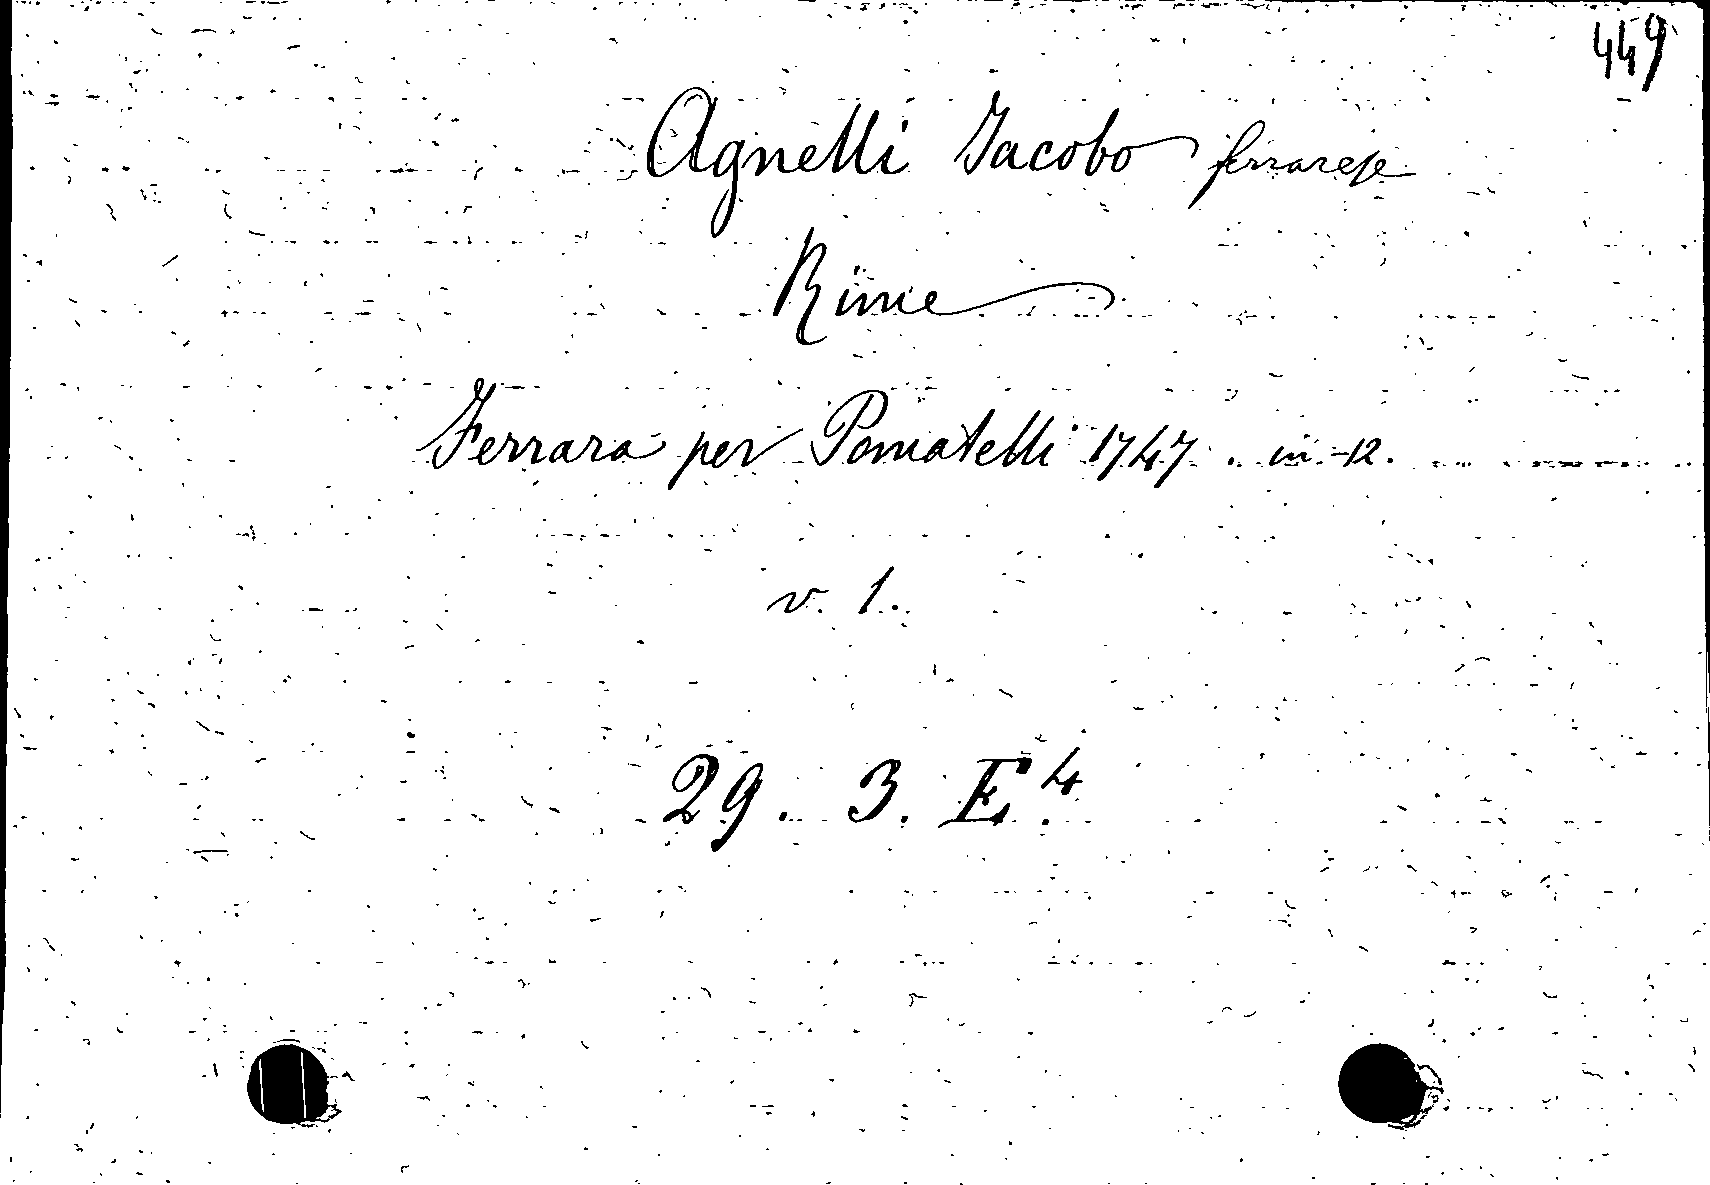 449
Agnelli Jacobo ferrarese
Rime
Ferrara per Pomatelli 1747. in-12.
v. 1.
29. 3. E.4